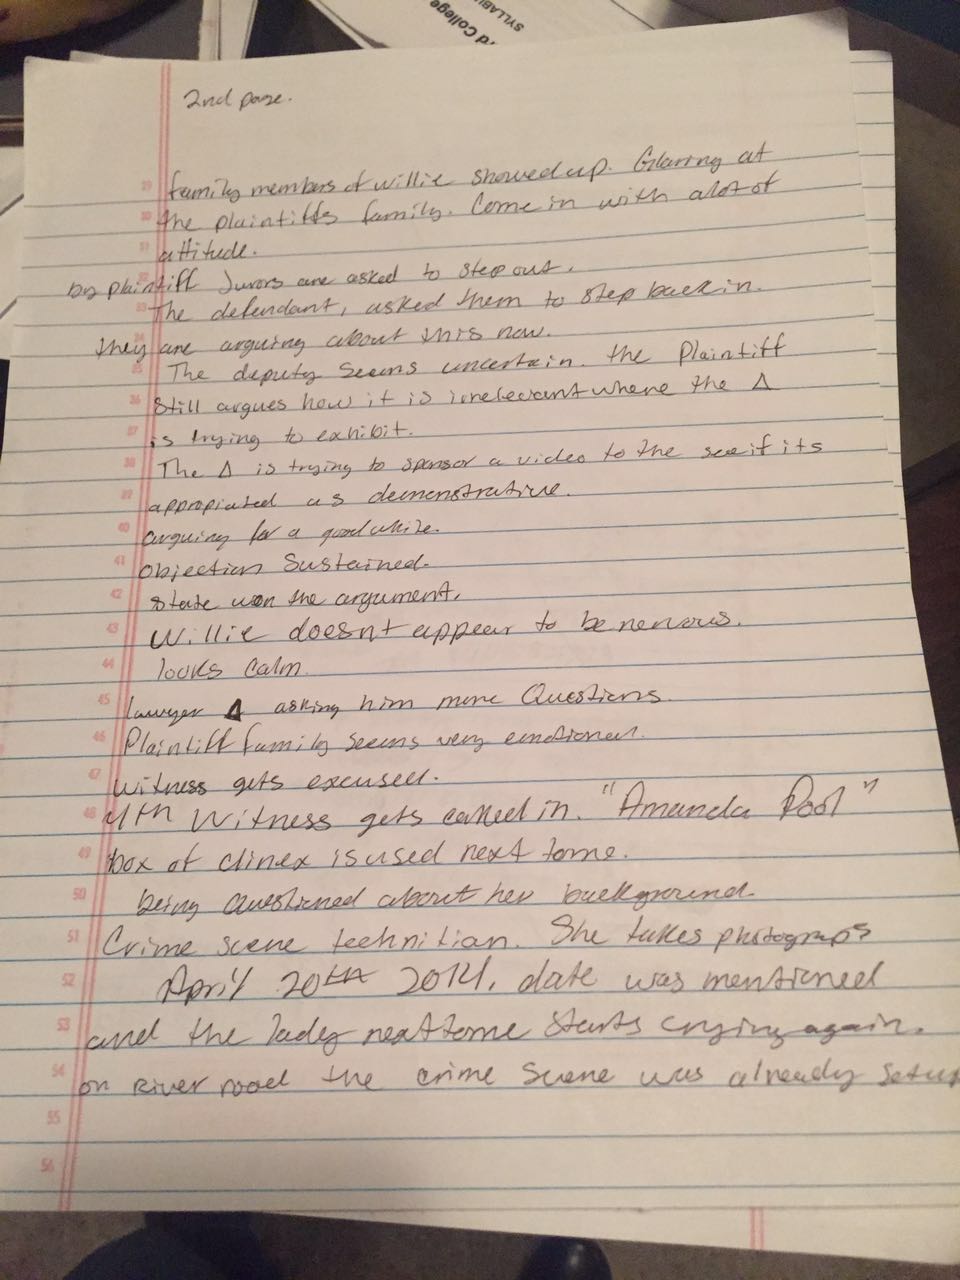 rd College
SYLLABU
2nd page.
29 family members of willie showed up. Glaring at
30 the plaintiffs family. Come in with alot of
31 attitude.
32 by plaintiff Jurors are asked to step out.
33 The defendant, asked them to step back in.
34 they are arguing about this now.
35 The deputy seems uncertain. the Plaintiff
36 still argues how it is irrelevant where the Δ
37 is trying to exhibit.
38 The Δ is trying to sponsor a video to the see if its
39 appropiated as demonstrative.
40 arguing for a good while.
41 objection Sustained.
42 state won the argument.
43 Willie doesnt appear to be nervous.
44 looks calm.
45 lawyer Δ asking him more Questions
46 Plaintiff family seems very emotional.
47 witness gets excused.
48 4th Witness gets called in. "Amanda Pool"
49 box of clinex is used next tome.
50 being Questioned about her background.
51 Crime scene technitian. She takes photograps
52 April 20th 2014, date was mentioned
53 and the lady next tome starts crying again.
54 on River road the crime scene was already setup
55
56